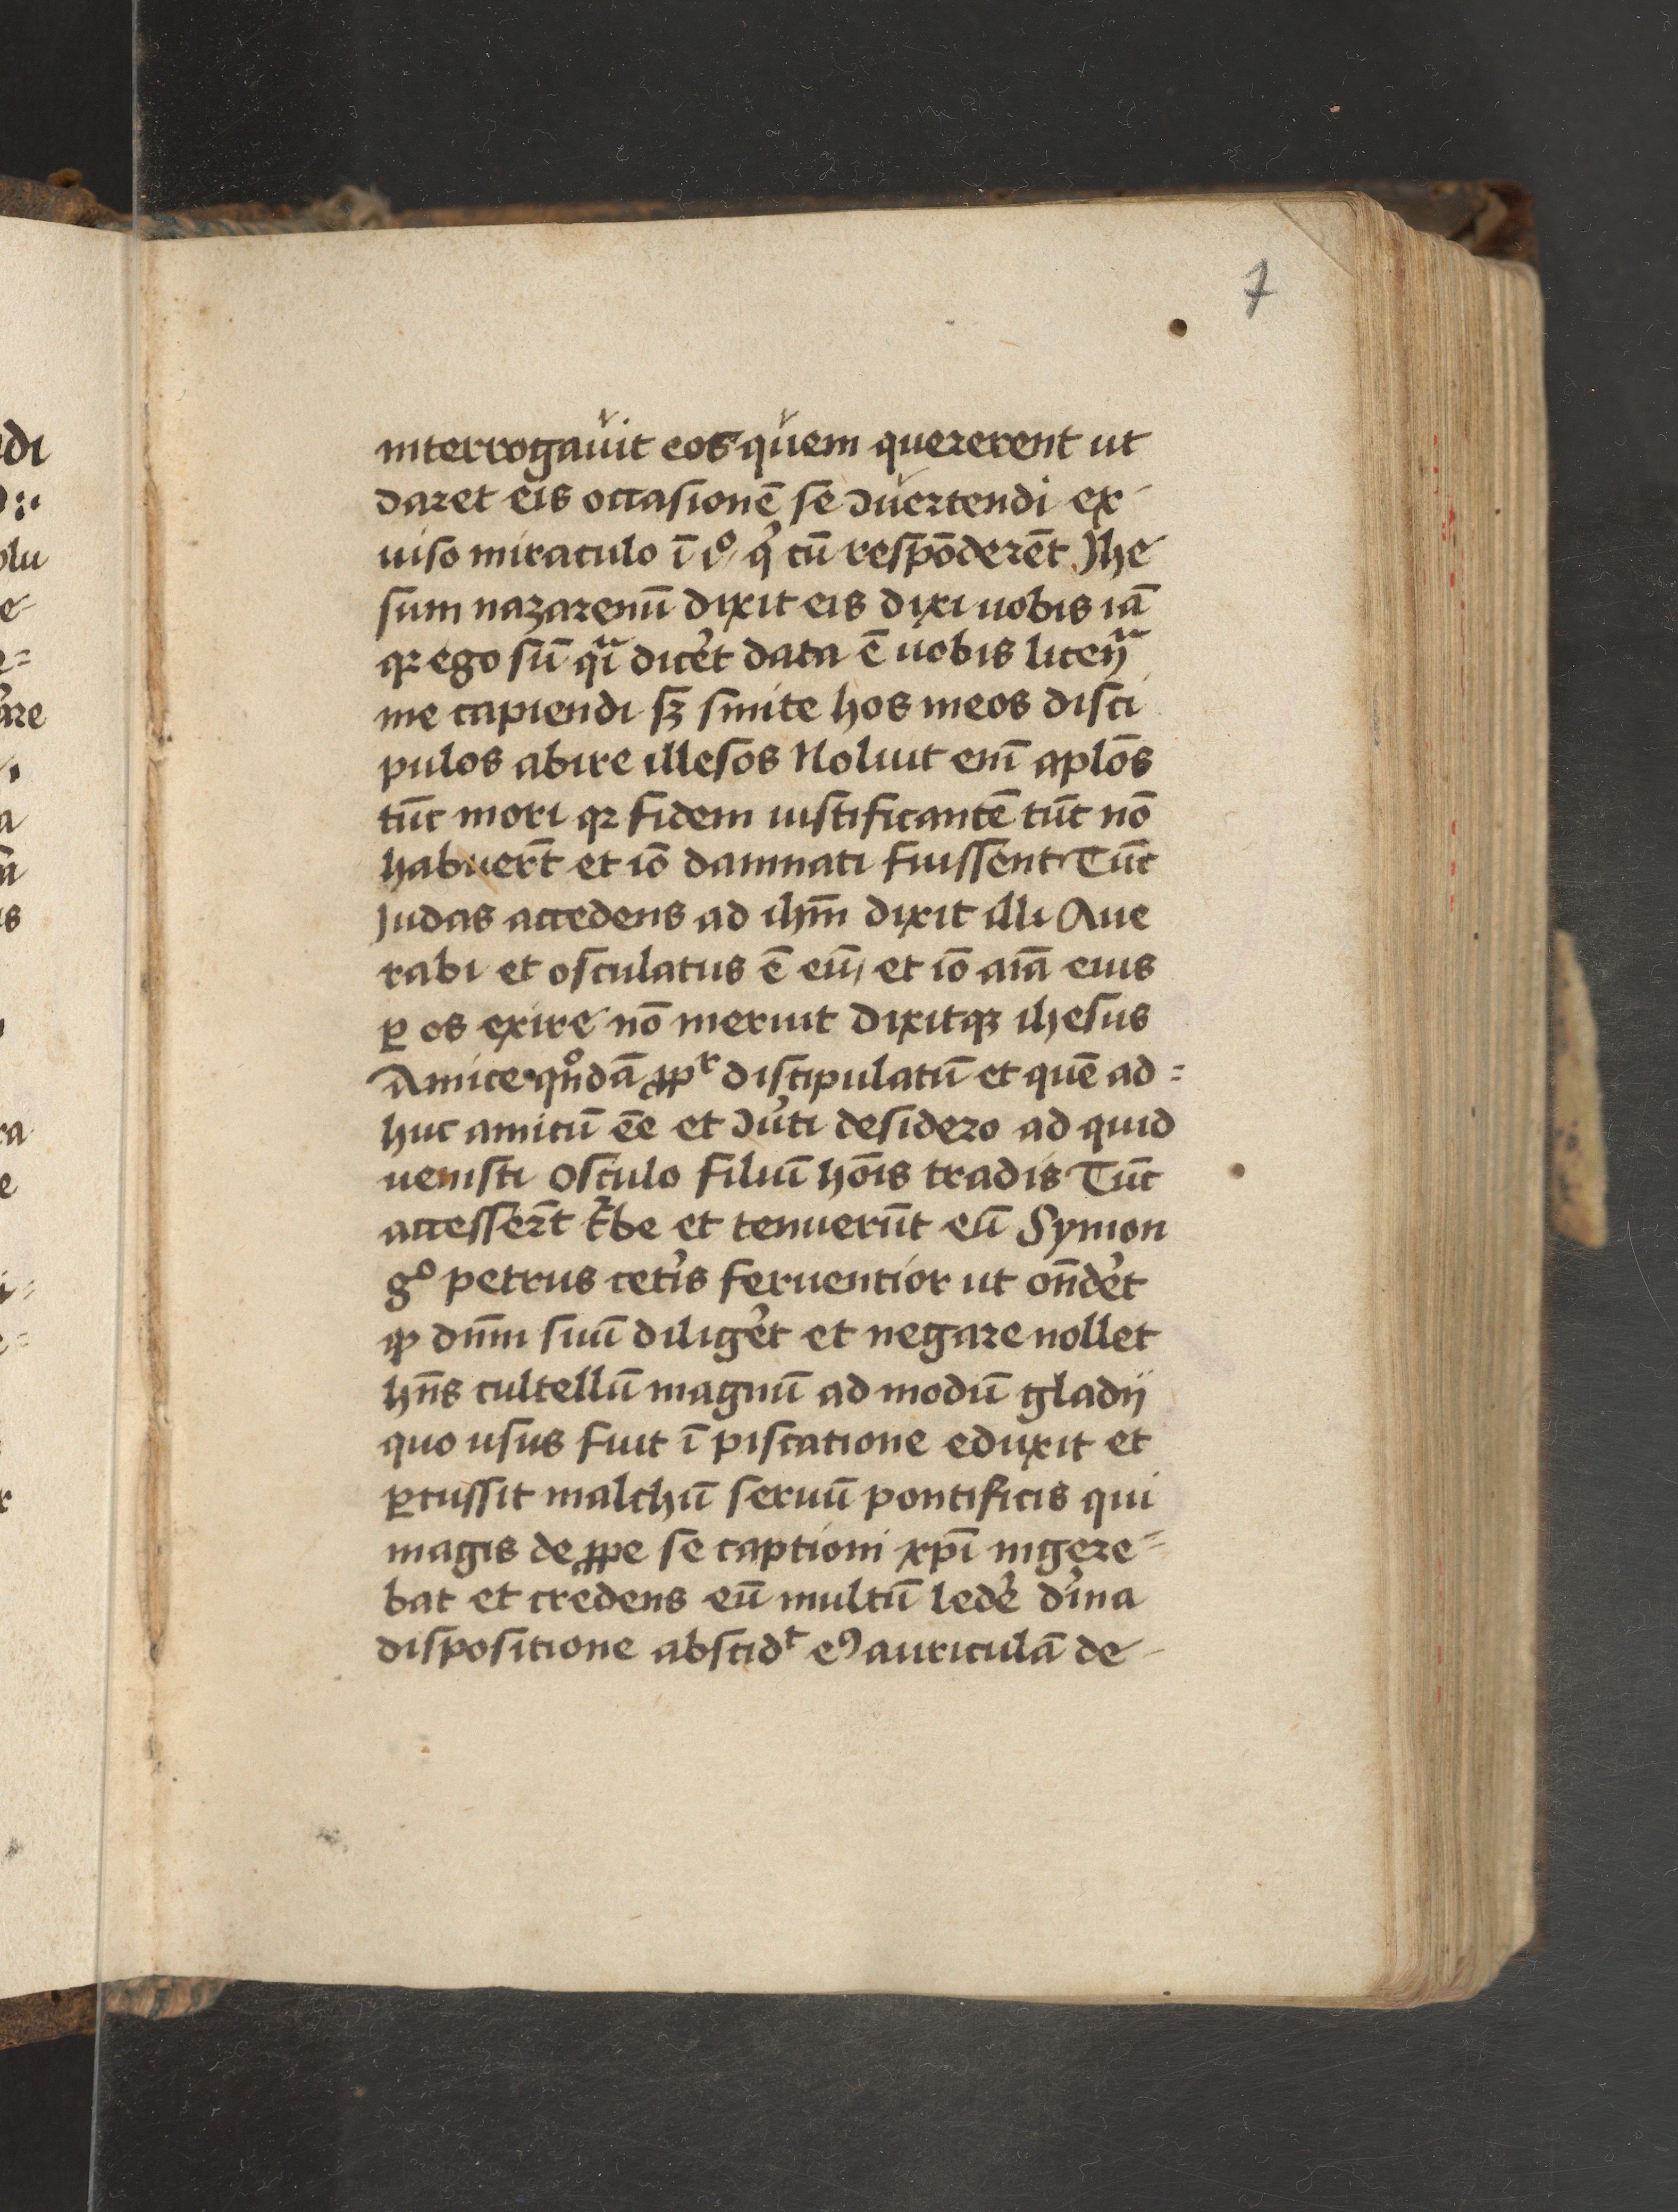 7
interrogauit eos quem quererent ut
daret eis occasionē se ɔuertendi ex
uiso miraculo ī cū respōderēt Jhe
sum nazarenū dixit eis dixi uobis iā
qꝛ ego sū dicēt data ē uobis
me capiendi sꝫ sinite hos meos disci
pulos abire illesos Noluit enī aplōs
tūc mori qꝛ fidem iustificantē tūc nō
habuerūt et iō damnati fuissent Tūc
Judas accedens ad ihm̄ dixit illi Aue
rabi et osculatus ē eū / et iō aīā eius
ꝑ os exire nō meruit dixitqꝫ ihesus
Amice qn̄dā discipulatū et quē ad=
huc amicū ēe et ɔu̓ti desidero ad quid
uenisti Osculo filiū hōis tradis Tūc
accesserūt t̓be et tenuerūt eū Symon
gͦ petrus cet̓is feruentior ut on̄det
ꝙ dn̄m suū diliget̓ et negare nollet
hn̄s cultellū magnū ad modū gladij
quo usus fuit ī piscatione eduxit et
ꝑcussit malchū seruū pontificis qui
magis de ꝓpe se captioni xp̄i ingere=
bat et credens eū multū lede̓ d̓ina
dispositione abscidᵗ eꝰ auriculā de